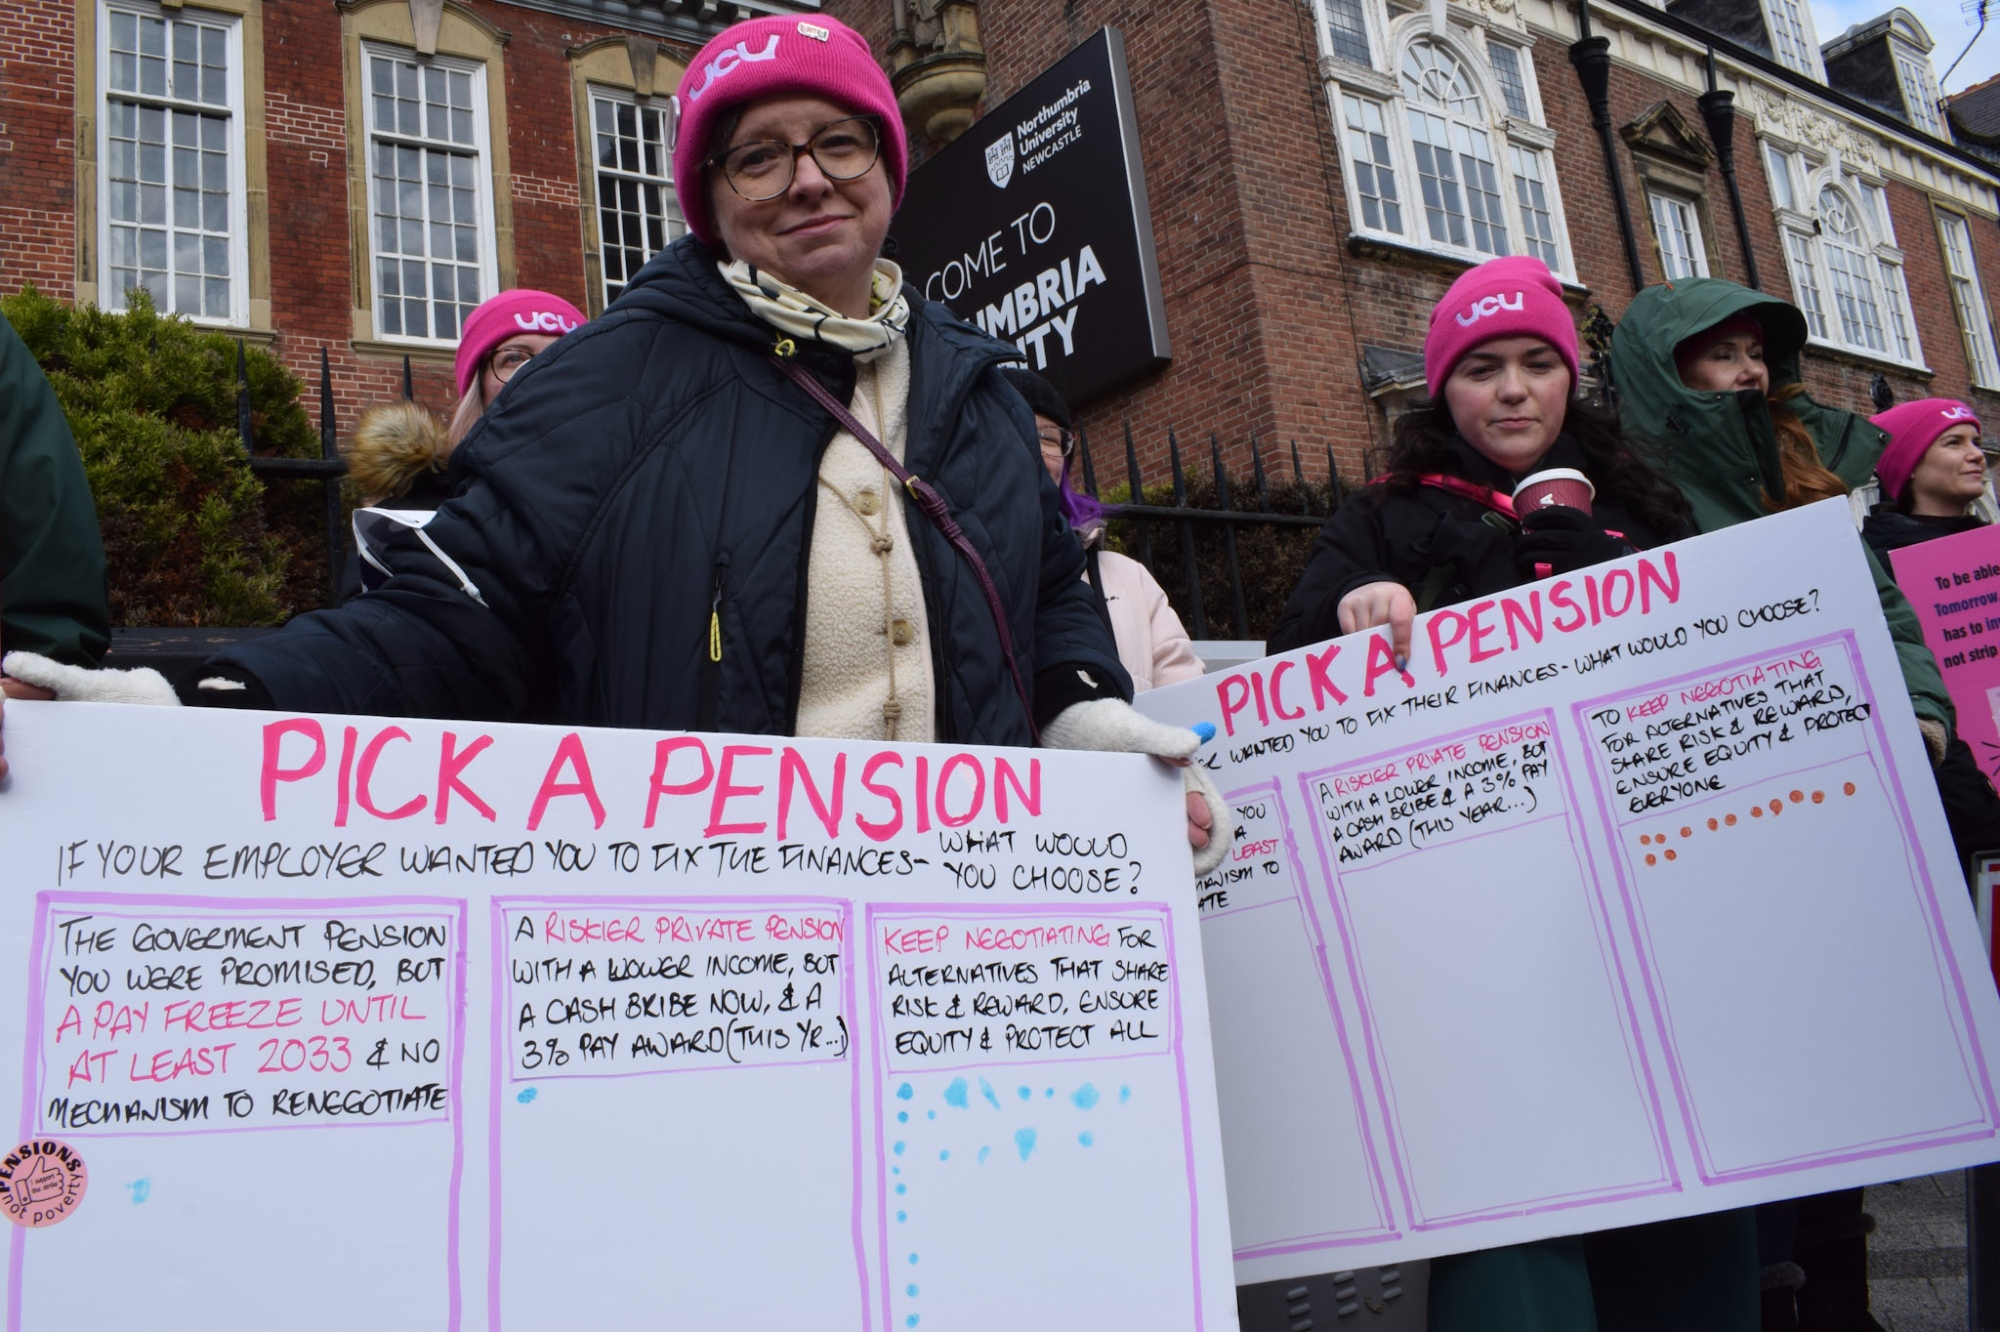 UCU
UCU
Northumbria
University
NEWCASTLE
COME TO
UMBRIA
ITY
UCU
UCU
UCU
PICK A PENSION
IF YOUR EMPLOYER WANTED YOU TO FIX THE FINANCES- WHAT WOULD
YOU CHOOSE?
THE GOVERMENT PENSION
YOU WERE PROMISED, BUT
A PAY FREEZE UNTIL
AT LEAST 2033 & NO
MECHANISM TO RENEGOTIATE
A RISKIER PRIVATE PENSION
WITH A LOWER INCOME, BUT
A CASH BRIBE NOW, & A
3% PAY AWARD (THIS YR...)
KEEP NEGOTIATING FOR
ALTERNATIVES THAT SHARE
RISK & REWARD, ENSURE
EQUITY & PROTECT ALL
PENSIONS
I support
the strike
not poverty
PICK A PENSION
WANTED YOU TO FIX THEIR FINANCES - WHAT WOULD YOU CHOOSE?
YOU
A
LEAST
TO
A RISKIER PRIVATE PENSION
WITH A LOWER INCOME, BUT
A CASH BRIBE & A 3% PAY
AWARD (THIS YEAR...)
TO KEEP NEGOTIATING
FOR ALTERNATIVES THAT
SHARE RISK & REWARD,
ENSURE EQUITY & PROTECT
EVERYONE
To be able
Tomorrow
has to
not strip